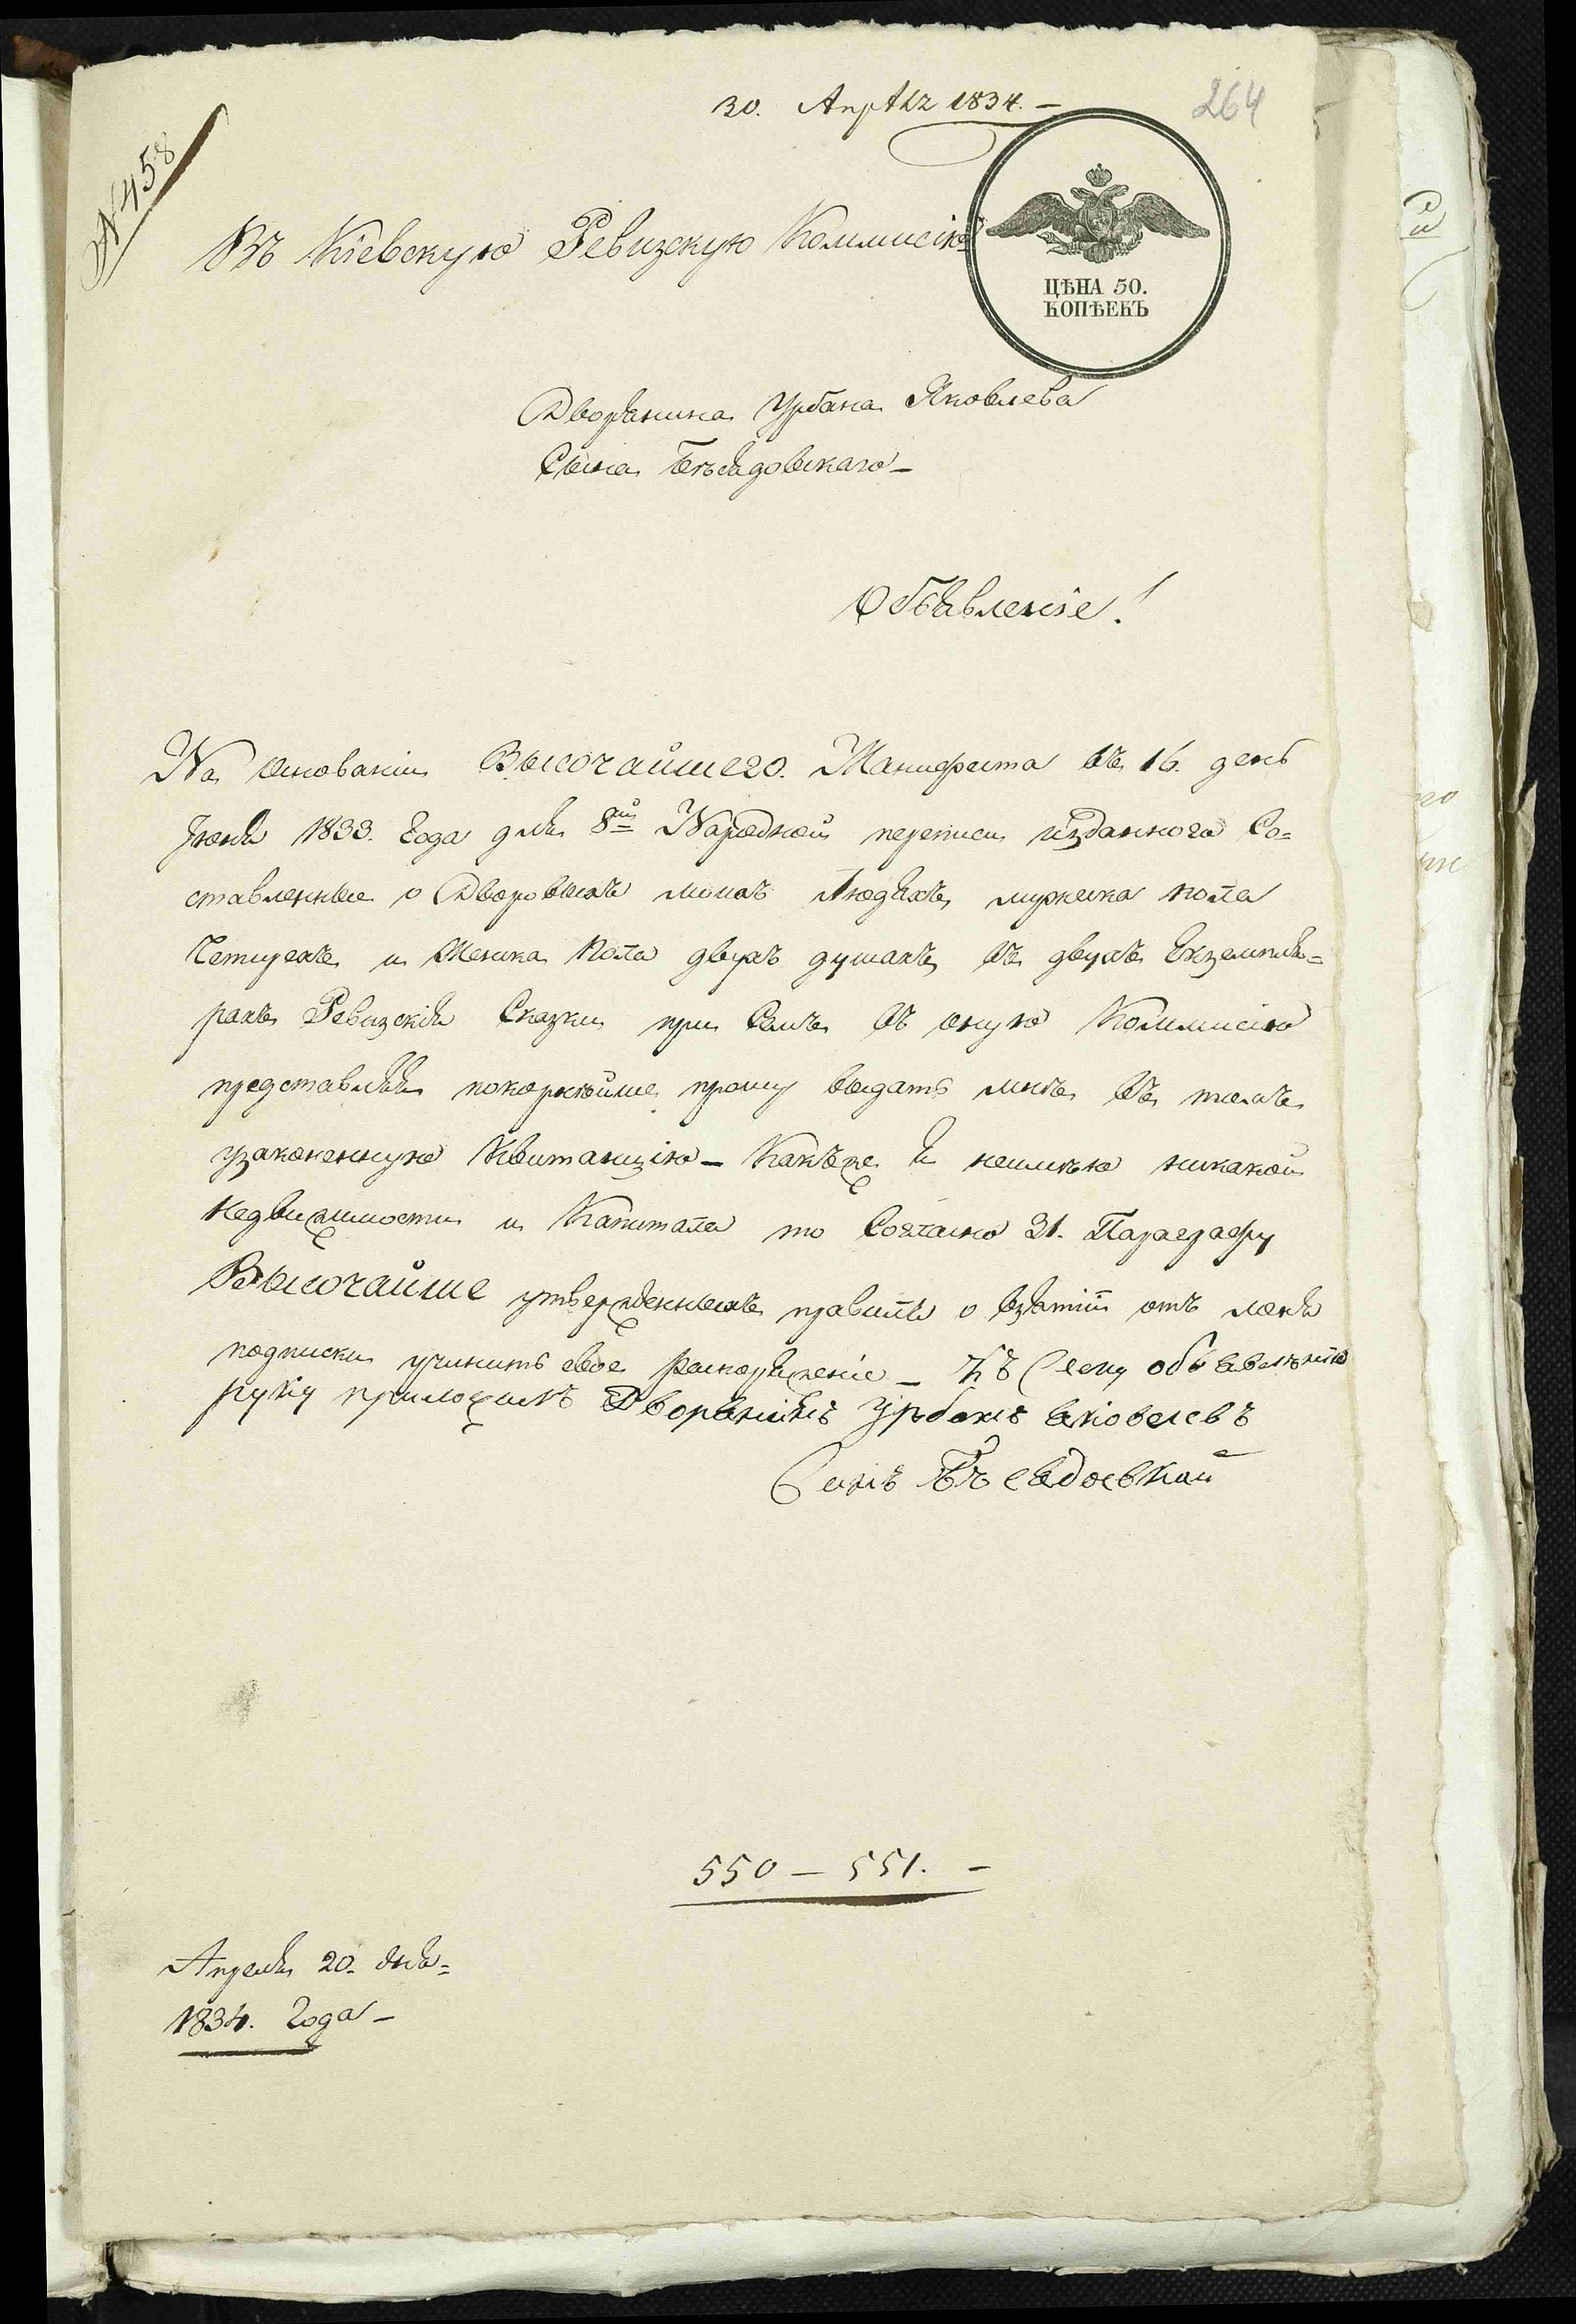 30. Апрѣля 1834. —
264
№ 458
Въ Кіевскую Ревизскую Коммисію
ЦѢНА 50.
КОПѢЕКЪ
Дворянина Урбана Яковлева
Сына Бѣсядовскаго —
Объявленіе!
На основаніи Высочайшего. Манифеста въ 16. день
Іюня 1833. Года для 8й Народной переписи изданного Со=
ставленные о Дворовыхъ моихъ Людяхъ, мужеска пола
Четырехъ и Женска Пола двухъ душахъ въ двухъ Екземпля=
рахъ Ревизскія Сказки при Семъ въ оную Коммисію
представляя покорнѣйше прошу выдать мнѣ въ томъ
узаконенную Квитанцію — Какъже я неимѣю никакой
недвижимости и Капитала то Согласно 31. Параграфу
Высочайше утвержденныхъ правилъ о взятіи отъ меня
подписки учинить свое распоряженіе — Къ Сему объявленію
руку приложилъ Дворянинъ Урбанъ Яковлевъ
Сынъ Бѣсядовскій
550 — 551. —
Апреля 20. дня =
1834. Года —